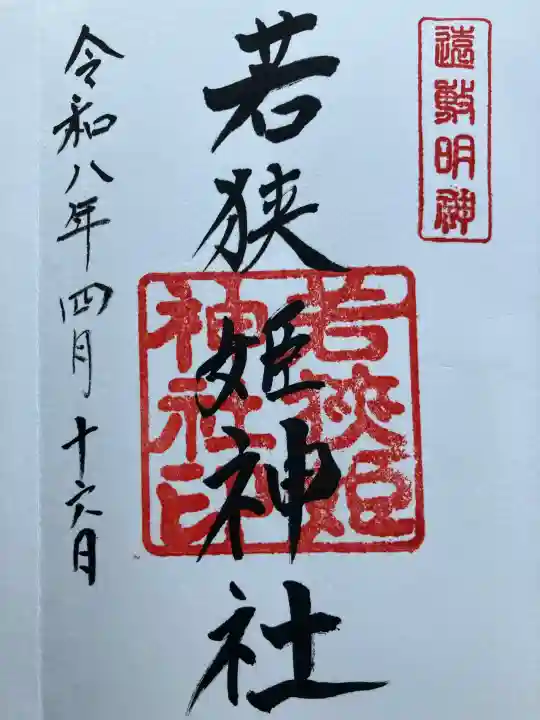 遠敷明神
若狭姫神社
若狭姫
神社印
令和八年四月十六日